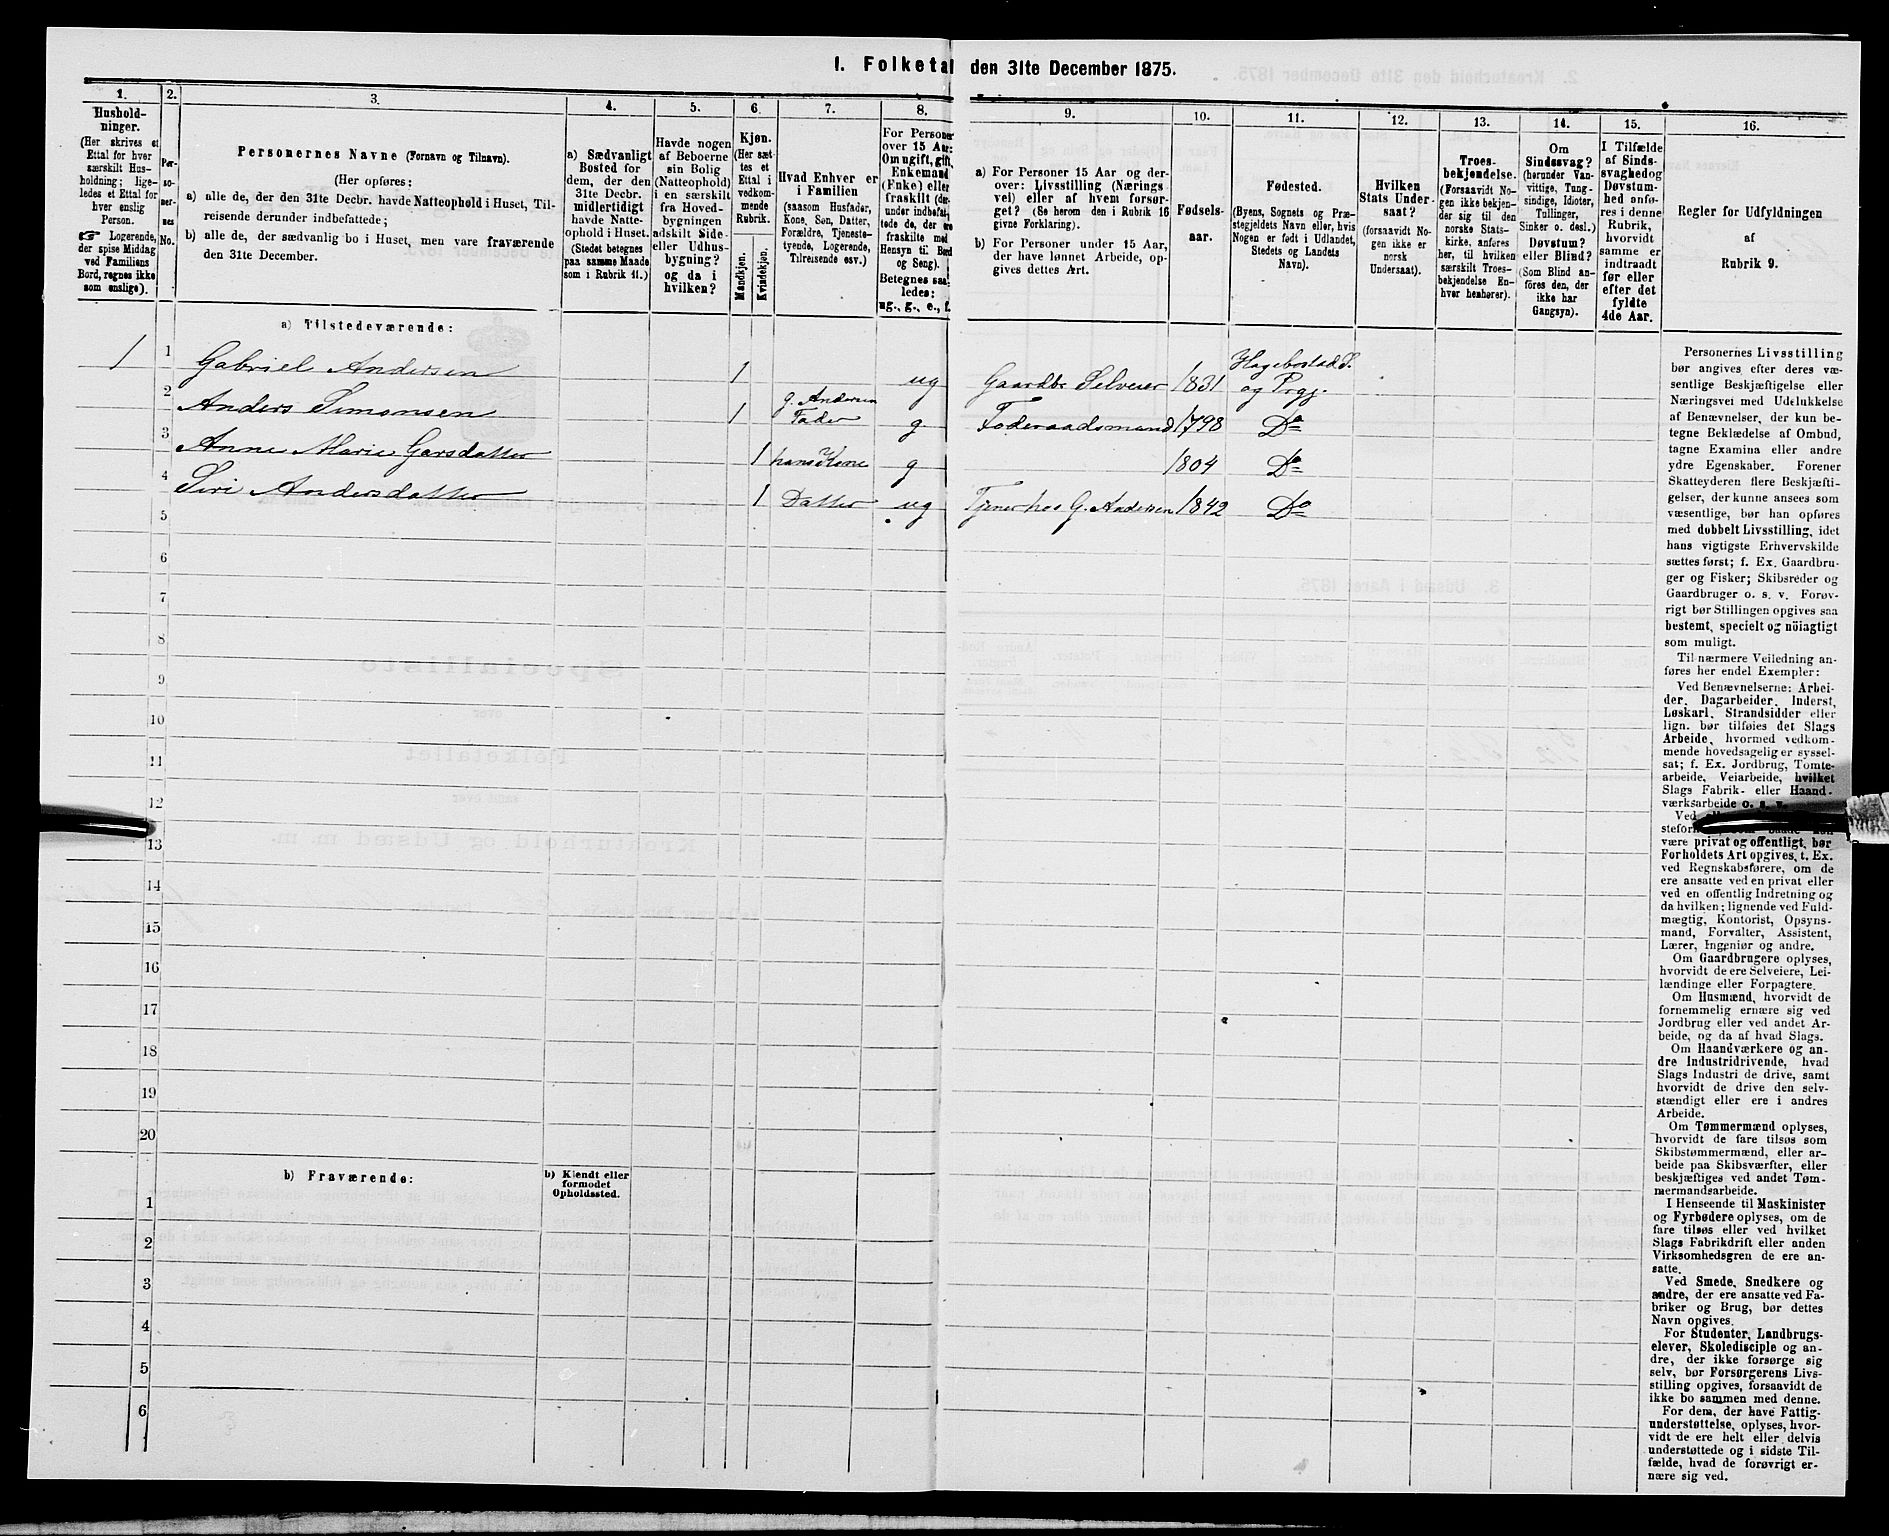 1. Folketal den 31te December 1875.
1.
Hushold-
ninger.
(Her skrives et
Ettal for hver
særskilt Hus-
holdning; lige-
ledes et Ettal for
hver enslig
Person.
Logerende,
der spise Middag
ved Familiens
Bord, regnes ikke
som enslige).
2.
Per-
so-
ner-
nes
No.
3.
Personernes Navne (Fornavn og Tilnavn).
(Her opføres:
a) alle de, der den 31te Decbr. havde Natteophold i Huset, Til-
reisende derunder indbefattede;
b) alle de, der sædvanlig bo i Huset, men vare fraværende
den 31te December.
4.
a) Sædvanligt
Bosted for
dem, der den
31te Decbr.
midlertidigt
havde Natte-
ophold i Huset.
(Stedet betegnes
paa samme Maade
som i Rubrik 11.)
5.
Havde nogen
af Beboerne
sin Bolig
(Natteophold)
i en særskilt
fra Hoved-
bygningen
adskilt Side-
eller Udhus-
bygning?
og da i
hvilken?
6.
Kjøn.
(Her sæt-
tes et
Ettal i
vedkom-
mende
Rubrik.
Mandkjøn.
Kvindekjøn.
7.
Hvad Enhver er
i Familien
(saasom Husfader,
Kone, Søn, Datter,
Forældre, Tjeneste-
tyende, Logerende,
Tilreisende osv.)
8.
For Personer
over 15 Aar:
Om ugift, gift,
Enkemand
(Enke) eller
fraskilt (der-
under indbefat-
tede de, der ere
fraskilte med
Hensyn til Bord
og Seng).
Betegnes saa-
ledes:
ug., g., e., f.
9.
a) For Personer 15 Aar og der-
over: Livsstilling (Nærings-
vei) eller af hvem forsør-
get? (Se herom den i Rubrik 16
givne Forklaring).
b) For Personer under 15 Aar,
der have lønnet Arbeide, op-
gives dettes Art.
10.
Fødsels-
aar.
11.
Fødested.
(Byens, Sognets og Præ-
stegjeldets Navn eller, hvis
Nogen er født i Udlandet,
Stedets og Landets
Navn).
12.
Hvilken
Stats Under-
saat?
(forsaavidt No-
gen ikke er
norsk
Undersaat).
13.
Troes-
bekjendelse.
(Forsaavidt No-
gen ikke bekjen-
der sig til den
norske Stats-
kirke, anføres
her, til hvilken
særskilt Troes-
bekjendelse En-
hver henhører).
14.
Om
Sindssvag?
(herunder Van-
vittige, Tung-
sindige, Idioter,
Tullinger,
Sinker o. desl.)
Døvstum?
eller Blind?
(Som Blind an-
føres den, der
ikke har
Gangsyn).
15.
I Tilfælde
af Sinds-
svaghed og
Døvstum-
hed anfø-
res i denne
Rubrik,
hvorvidt
samme er
indtraadt
før eller
efter det
fyldte
4de Aar.
16.
Regler for Udfyldningen
af
Rubrik 9.
a) Tilstedeværende:
1 1 Gabriel Andersen 1 ug Gaardbr Selveier 1831 Hagebostad S.
og Prgj.
2 Anders Simonsen 1 G. Andersen
Fader g. Føderaadsmand 1798 Do
3 Anne Marie Garsdatter 1 hans Kone g 1804 Do
4 Siri Andersdatter 1 Datter ug Tjener hos G. Andersen 1842 Do
5
6
7
8
9
10
11
12
13
14
15
16
17
18
19
20
b) Fraværende:
b) Kjendt eller
formodet
Opholdssted.
1
2
3
4
5
6
Personernes Livsstilling
bør angives efter deres væ-
sentlige Beskjæftigelse eller
Næringsvei med Udelukkelse
af Benævnelser, der kun be-
tegne Beklædelse af Ombud,
tagne Examina eller andre
ydre Egenskaber. Forener
Skatteyderen flere Beskjæfti-
gelser, der kunne ansees som
væsentlige, bør han opføres
med dobbelt Livsstilling, idet
hans vigtigste Erhvervskilde
sættes først; f. Ex. Gaardbru-
ger og Fisker; Skibsreder og
Gaardbruger o. s. v. Forøv-
rigt bør Stillingen opgives saa
bestemt, specielt og nöiagtigt
som muligt.
Til nærmere Veiledning an-
føres her endel Exempler:
Ved Benævnelserne: Arbei-
der, Dagarbeider, Inderst,
Løskarl, Strandsidder eller
lign. bør tilføies det Slags
Arbeide, hvormed vedkom-
mende hovedsagelig er syssel-
sat; f. Ex. Jordbrug, Tomte-
arbeide, Veiarbeide, hvilket
Slags Fabrik- eller Haand-
værksarbeide o. s. v.
Ved
stefor
være privat og offentligt, bør
Forholdets Art opgives, t. Ex.
ved Regnskabsførere, om de
ere ansatte ved en privat eller
ved en offentlig Indretning og
da hvilken; lignende ved Fuld-
mægtig, Kontorist, Opsyns-
mand, Forvalter, Assistent,
Lærer, Ingeniør og andre.
Om Gaardbrugere oplyses,
hvorvidt de ere Selveiere, Lei-
lændinge eller Forpagtere.
Om Husmænd, hvorvidt de
fornemmelig ernære sig ved
Jordbrug eller ved andet Ar-
beide, og da af hvad Slags.
Om Haandværkere og an-
dre Industridrivende, hvad
Slags Industri de drive, samt
hvorvidt de drive den selv-
stændigt eller ere i andres
Arbeide.
Om Tømmermænd oplyses,
hvorvidt de fare tilsøs som
Skibstømmermænd, eller ar-
beide paa Skibsværfter, eller
beskjæftiges ved andet Tøm-
mermandsarbeide.
I Henseende til Maskinister
og Fyrbødere oplyses, om de
fare tilsøs eller ved hvilket
Slags Fabrikdrift eller anden
Virksomhedsgren de ere an-
satte.
Ved Smede, Snedkere og
andre, der ere ansatte ved Fa-
briker og Brug, bør dettes
Navn opgives.
For Studenter, Landbrugs-
elever, Skoledisciple og an-
dre, der ikke forsørge sig
selv, bør Forsørgerens Livs-
stilling opgives, forsaavidt de
ikke bo sammen med denne.
For dem, der have Fattig-
understøttelse, oplyses, hvor-
vidt de ere helt eller delvis
understøttede og i sidste Til-
fælde, hvad de forøvrigt er-
nære sig ved.